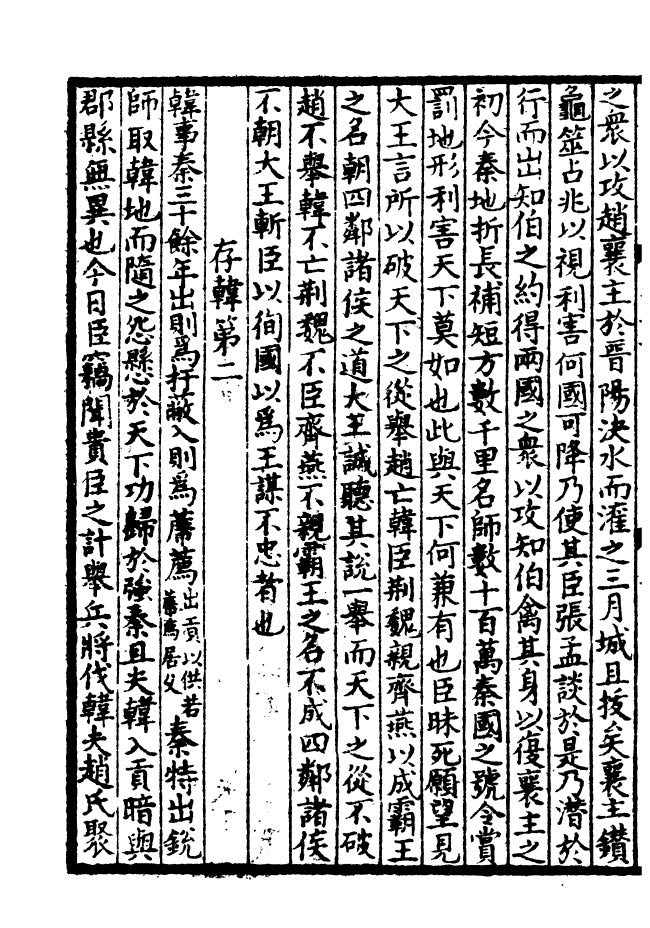 之衆以攻趙襄主於晉陽決水而灌之三月城且拔矣襄主鑚
龜筮占兆以視利害何國可降乃使其臣張孟談於是乃潛於
行而出知伯之約得兩國之衆以攻知伯禽其身以復襄主之
初今秦地折長補短方數千里名師數十百萬秦國之號令賞
罰地形利害天下莫如也此與天下何兼有也臣昧死願望見
大王言所以破天下之從舉趙亡韓臣荆魏親齊燕以成霸王
之名朝四鄰諸侯之道大王誠聽其說一舉而天下之從不破
趙不舉韓不亡荆魏不臣齊燕不親霸王之名不成四鄰諸侯
不朝大王斬臣以徇國以爲王謀不忠者也
存韓第二
韓事秦三十餘年出則爲扞蔽入則爲蓆薦出貢以供若薦爲居父秦特出銳
師取韓地而隨之怨懸於天下功歸於強秦且夫韓入貢暗與
郡縣無異也今日臣竊聞貴臣之計舉兵將伐韓夫趙氏聚